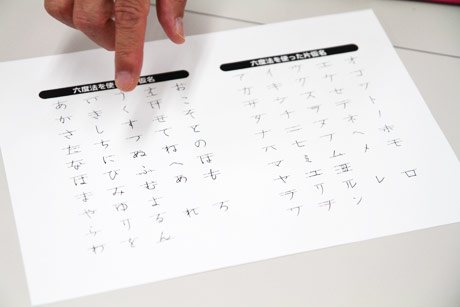 六度法を使 仮名
あ い う え お
か き く け こ
さ し す せ そ
た ち つ て と
な に ぬ ね の
は ひ ふ へ ほ
ま み む め も
や ゆ よ
ら り る れ ろ
わ を ん
六度法を使った片仮名
ア イ ウ エ オ
カ キ ク ケ コ
サ シ ス セ ソ
タ チ ツ テ ト
ナ ニ ヌ ネ ノ
ハ ヒ フ ヘ ホ
マ ミ ム メ モ
ヤ ユ ヨ
ラ リ ル レ ロ
ワ ヲ ン